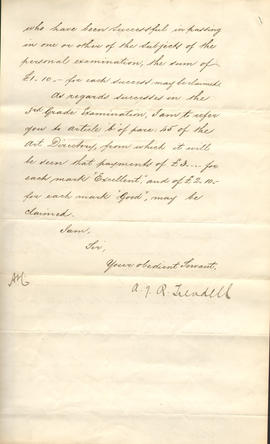 who have been successful in passing
in one or other of the subjects of the
personal examination, the sum of
£1. 10. - for each success may be claimed.
As regards successes in the
3rd Grade Examination, I am to refer
you to article b of para. 45 of the
Art Directory, from which it will
be seen that payments of £3. - . - for
each mark "Excellent", and of £2. 10. -
for each mark "Good", may be
claimed.
I am,
Sir,
Your obedient Servant,
A. J. R. Trendell